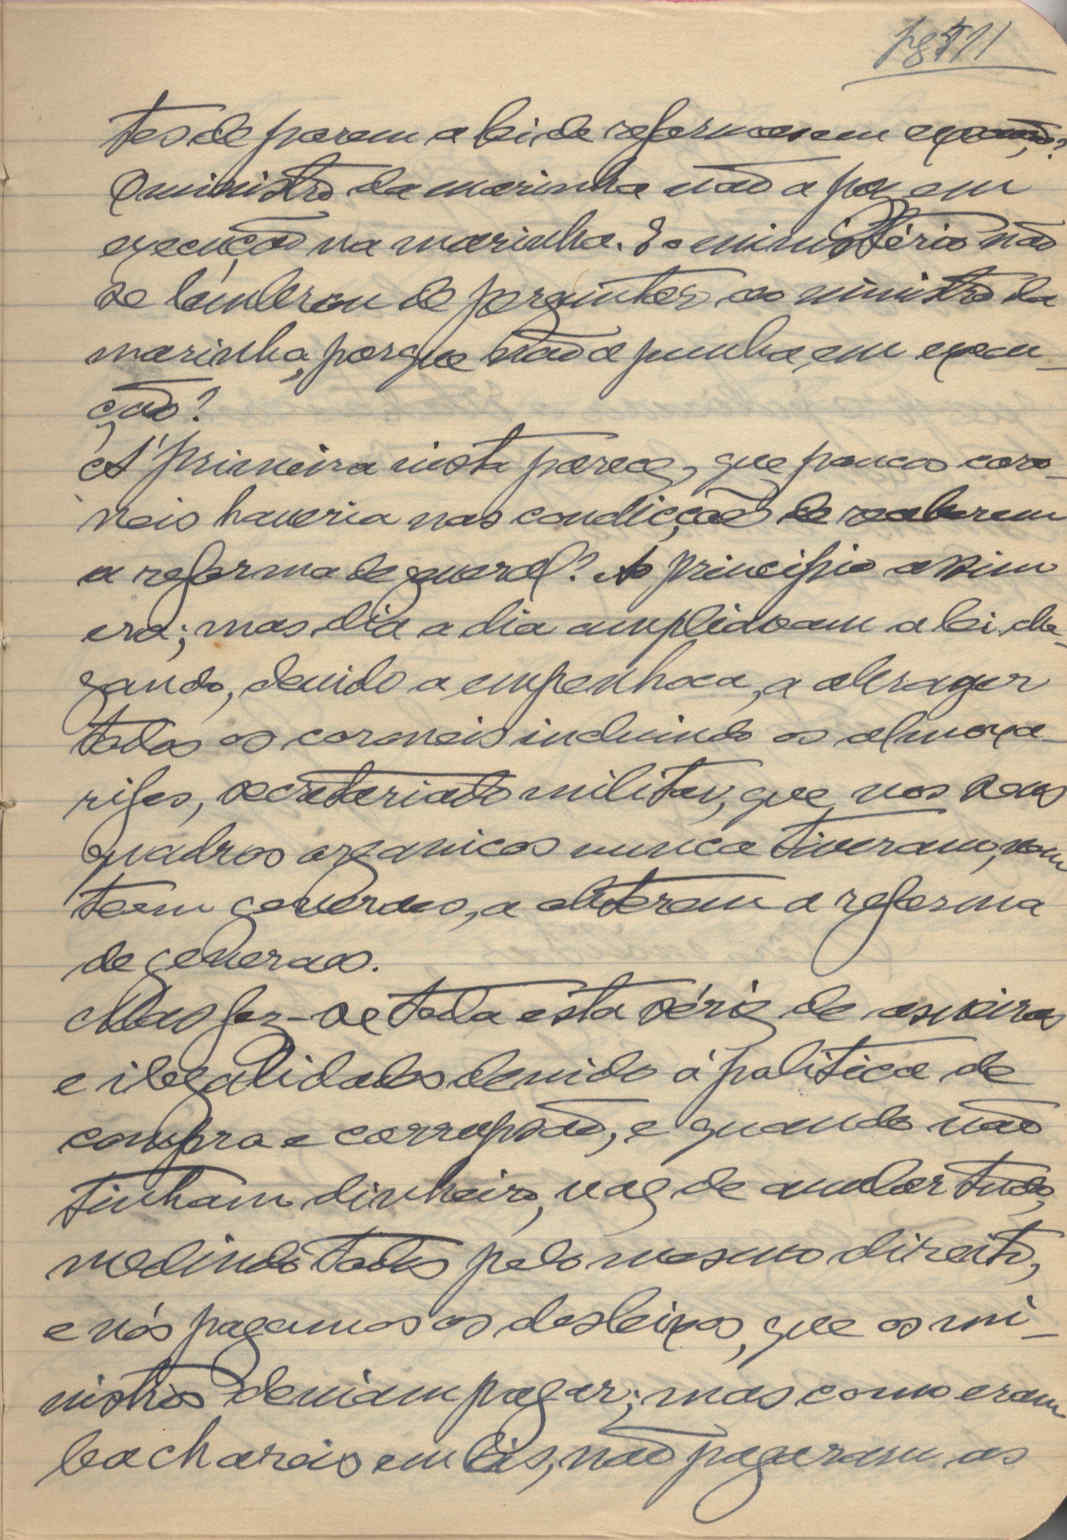 tes de porem a lei de reformas em execução?
O ministro da marinha não a poz em
execução na marinha. E o ministério não
se lembrou de perguntar ao ministro da
marinha, porque não a punha em execu-
ção?
A' primeira vista parece, que poucos coro-
neis haveria nas condicções de receberem
a reforma de general? Ao principio assim
era; mas dia a dia ampliavam a lei, che-
gando, devido a empenhoca, a abranger
todos os coroneis incluindo os almoxa-
rifes, secretariato militar, que, nos seus
quadros organicos nunca tiveram, nem
teem generaes, a obterem a reforma
de generaes.
Mas fez-se toda esta série de asneiras
e ilegalidades devido á politica de
compra e corrupsão, e quando não
tinham dinheiro, vae de anular tudo,
medindo todos pelo mesmo direito,
e nós pagamos os desleixos, que os mi-
nistros deviam pagar; mas como eram
bachareis em leis, não pagaram as